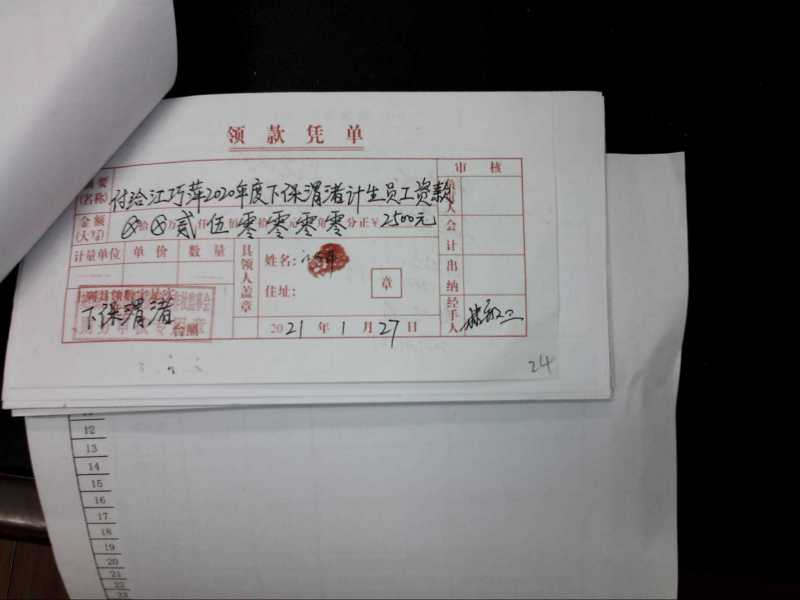 领款凭单
审核
摘要(名称) 付给江巧萍2020年度下保渭渚计生员工资款
负责人
金额(大写) ⊗拾⊗万贰仟伍佰零拾零元零角零分正¥2500元
会计
计量单位 单价 数量 具领人盖章 姓名:
出纳
住址: 章
下保渭渚
2021年1月27日
经手人
24
12
13
14
15
16
17
18
19
20
21
22
23